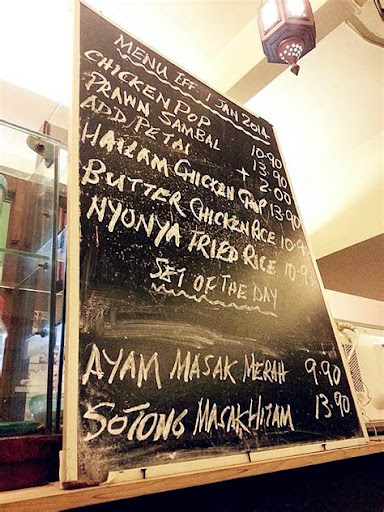 MENU EFF. 1 JAN 2014
CHICKEN POP 10.90
PRAWN SAMBAL 13.90
ADD/PETAI + 2.00
HAILAM CHICKEN CHOP 13.90
BUTTER CHICKEN RICE 10.9
NYONYA FRIED RICE 10.9
SET OF THE DAY
AYAM MASAK MERAH 9.90
SOTONG MASAK HITAM 13.90